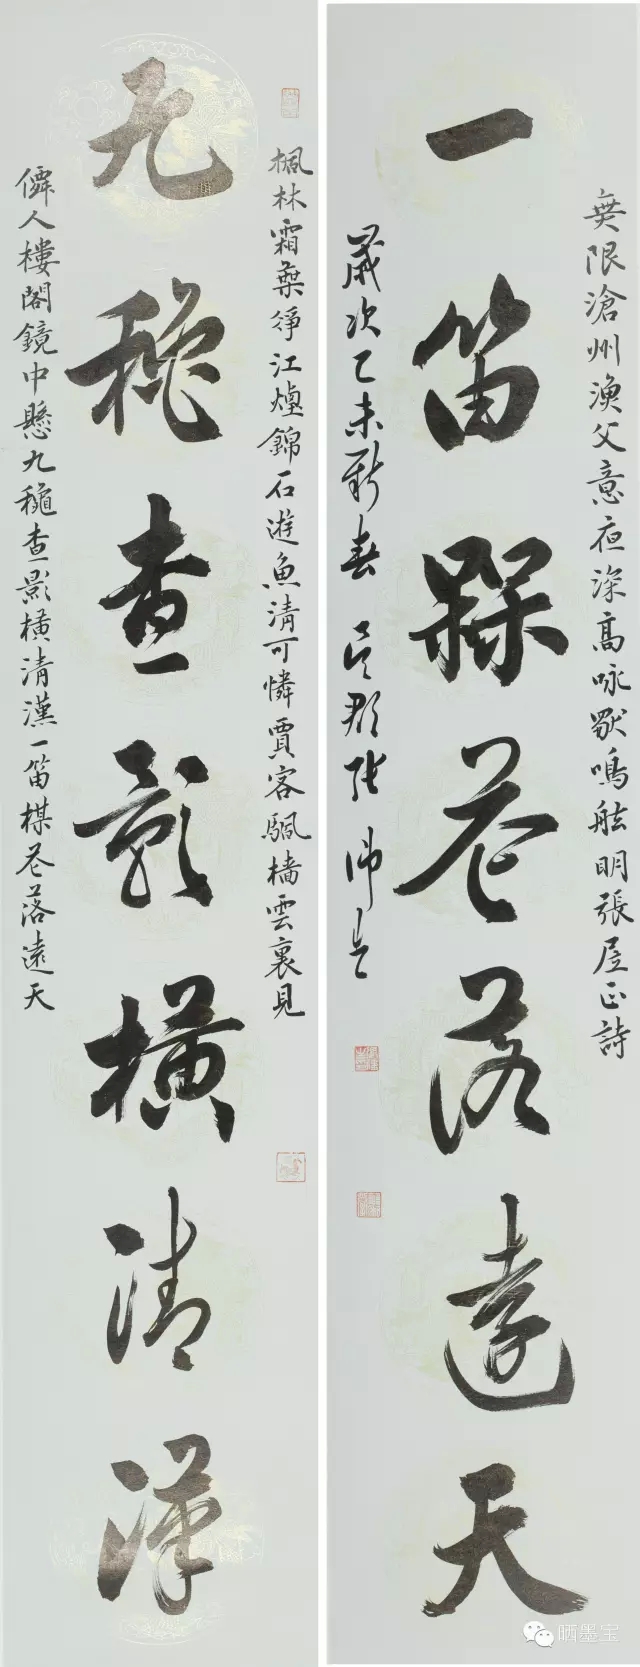 楓林霜葉淨江煙錦石遊魚清可憐賈客颿檣雲裏見
九穐查影橫清漢
僊人樓閣鏡中懸九穐查影橫清漢一笛楳花落遠天
無限滄州漁父意夜深高咏獨鳴舷明張居正詩
一笛楳花落遠天
歲次乙未新春 吳郡張
晒墨宝